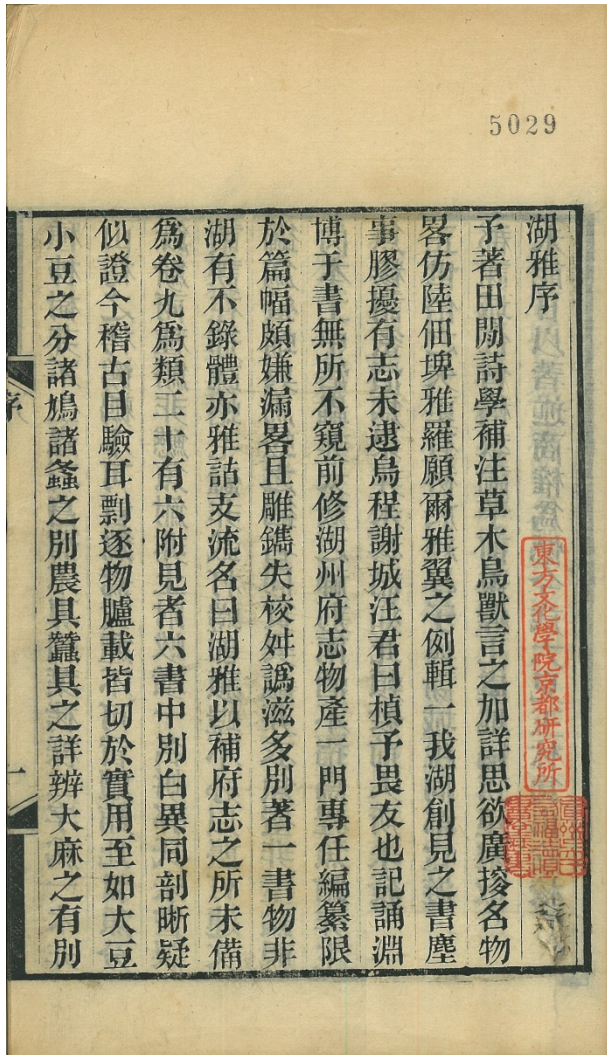 5029
湖雅序
予著田閒詩學補注草木鳥獸言之加詳思欲廣搜名物
畧仿陸佃埤雅羅願爾雅翼之例輯一我湖創見之書塵
事膠擾有志未逮烏程謝城汪君曰楨予畏友也記誦淵
博于書無所不窺前修湖州府志物產一門專任編纂限
於篇幅頗嫌漏畧且雕鐫失校舛譌滋多別著一書物非
湖有不錄體亦雅詁支流名曰湖雅以補府志之所未備
爲卷九爲類二十有六附見者六書中別白異同剖晰疑
似證今稽古目驗耳剽逐物臚載皆切於實用至如大豆
小豆之分諸鳩諸螽之別農具蠶具之詳辨大麻之有別
序
一
東方文化學院京都研究所